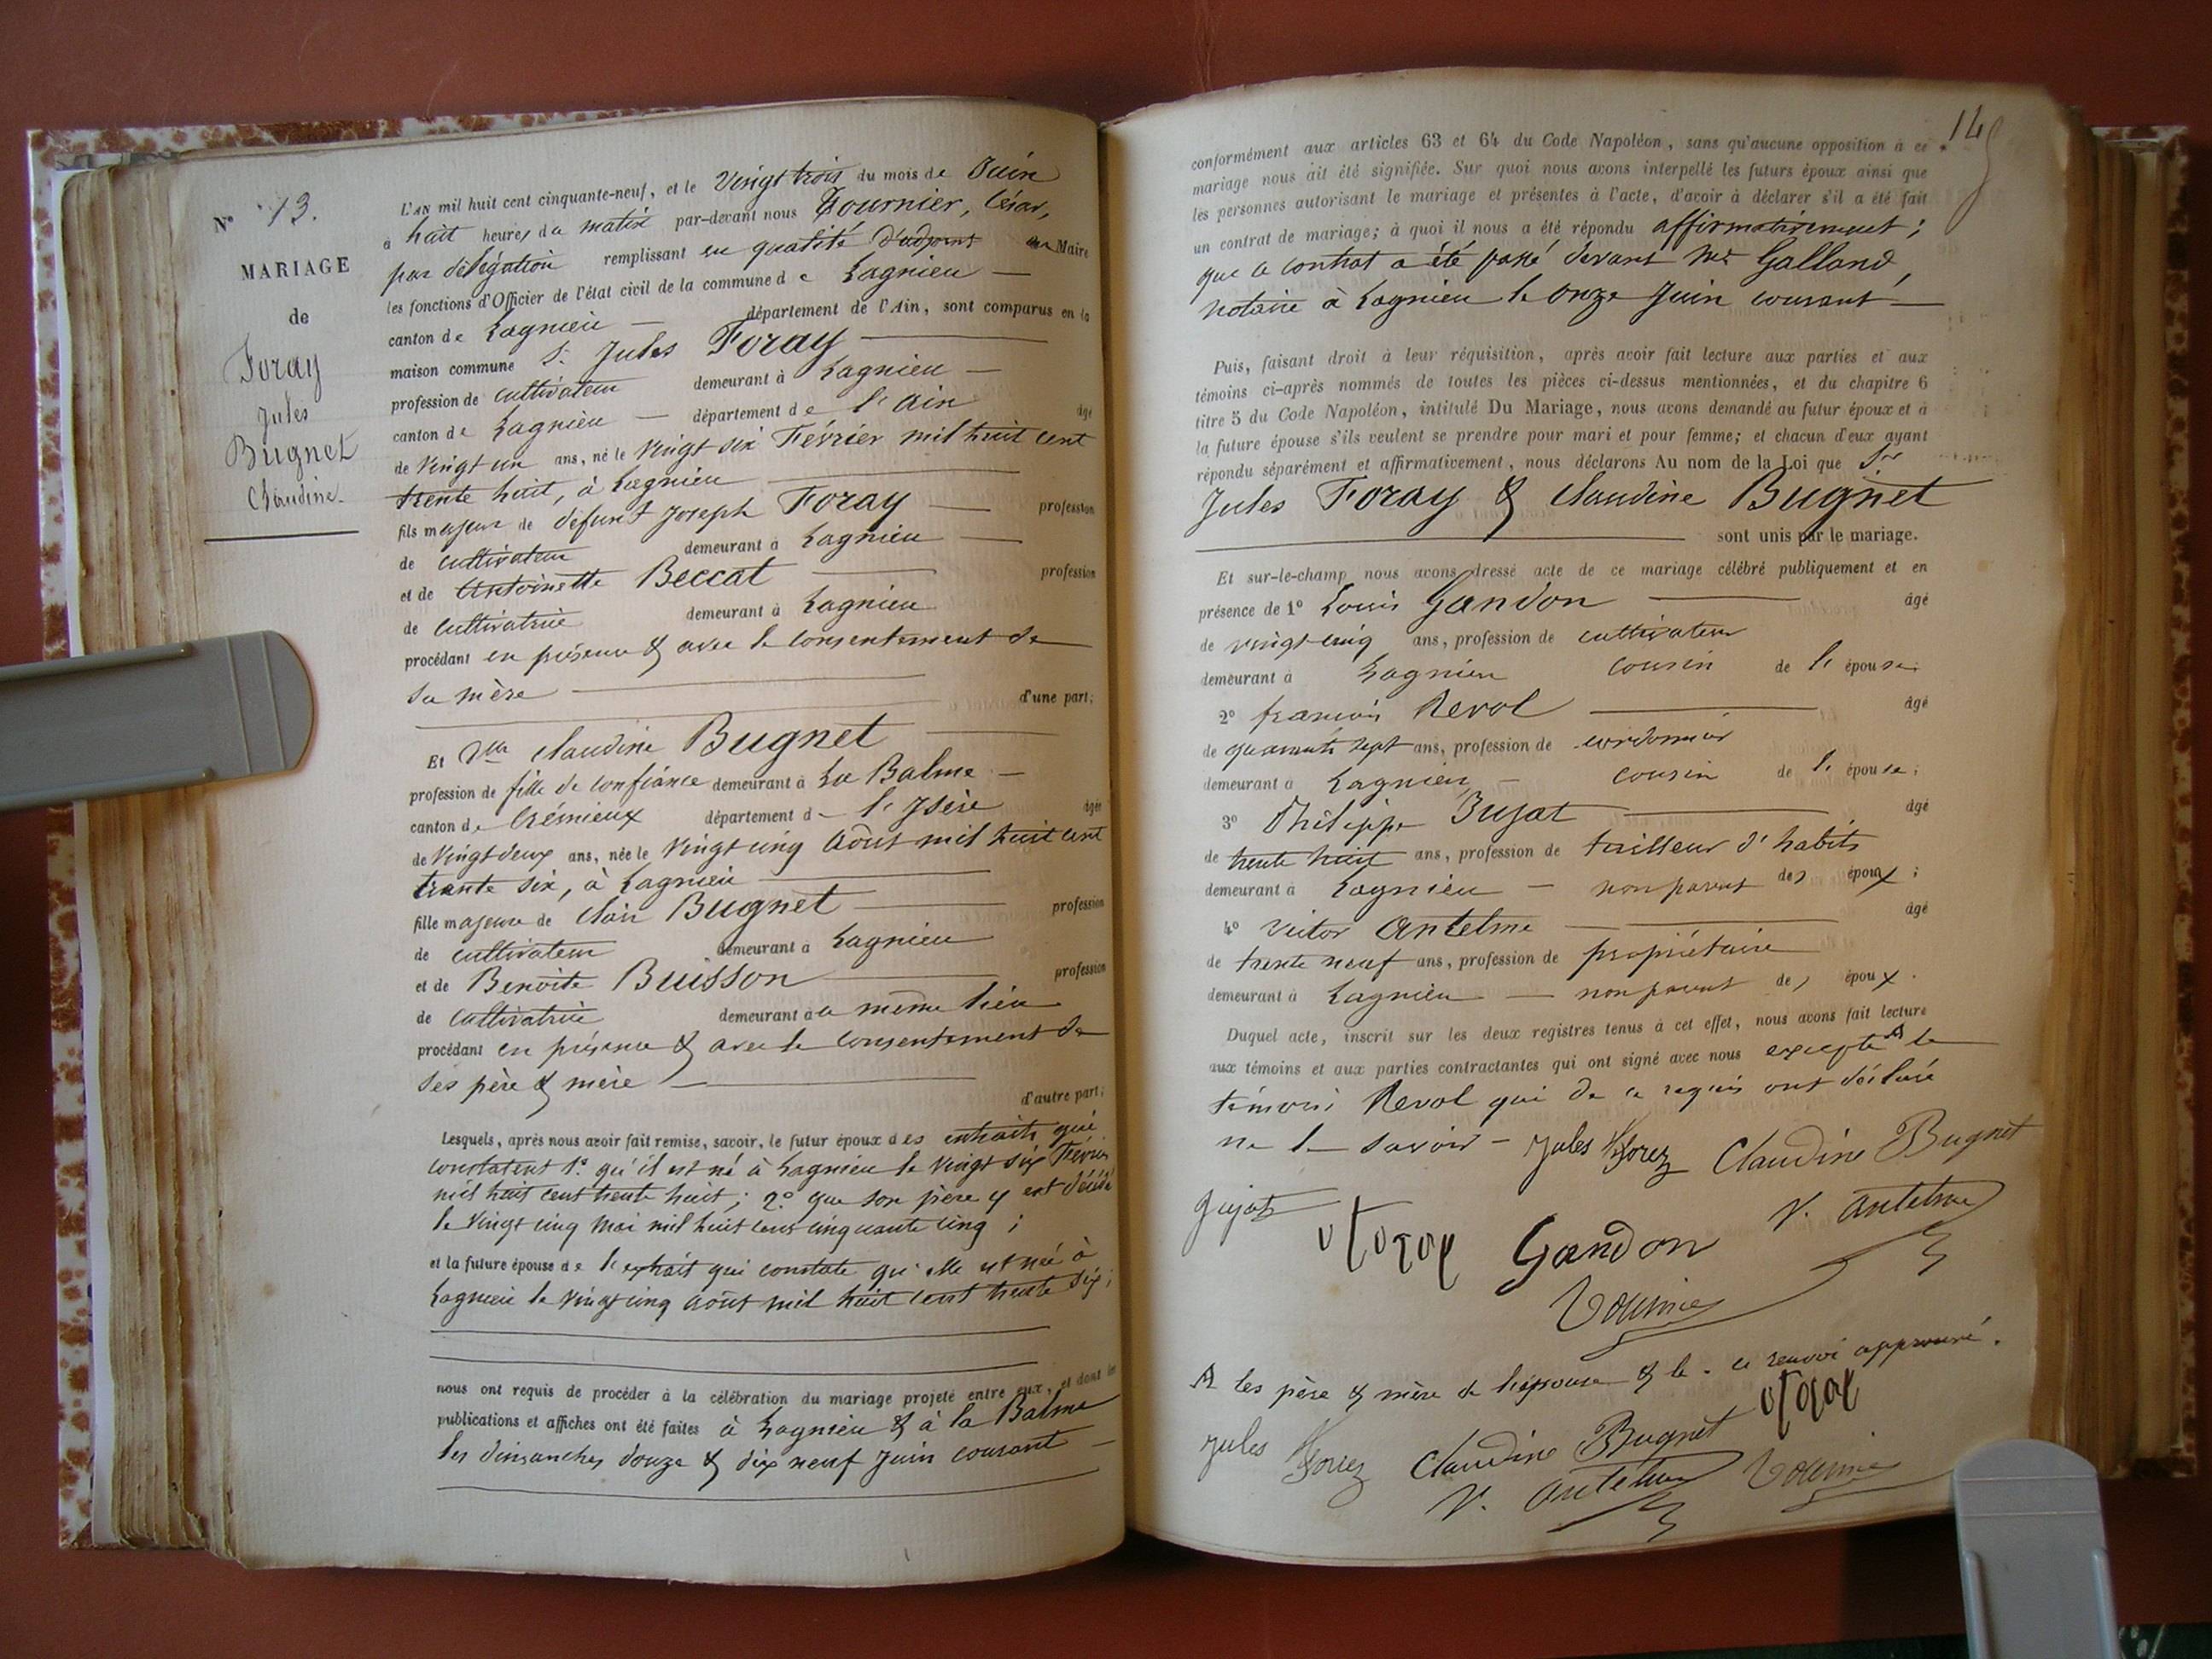 N° 13.
MARIAGE
de
Foray
Jules
Bugnet
Claudine.
L'AN mil huit cent cinquante-neuf, et le Vingt trois du mois de Juin
à huit heures du matin par-devant nous Fournier, César,
par délégation remplissant en qualité d'adjoint au Maire
les fonctions d'Officier de l'état civil de la commune de Lagnieu —
canton de Lagnieu — département de l'Ain, sont comparus en la
maison commune Sr Jules Foray —
profession de cultivateur demeurant à Lagnieu —
canton de Lagnieu — département de l'Ain âgé
de Vingt un ans, né le Vingt six Février mil huit cent
trente huit, à Lagnieu —
fils majeur de défunt Joseph Foray — profession
de cultivateur demeurant à Lagnieu —
et de Antoinette Beccat — profession
de cultivatrice demeurant à Lagnieu
procédant en présence & avec le consentement de
sa mère — d'une part;
Et Dlle Claudine Bugnet —
profession de fille de confiance demeurant à La Balme —
canton de Crémieux département de l'Isère âgée
de Vingt deux ans, née le Vingt cinq Août mil huit cent
trente six, à Lagnieu —
fille majeure de Clair Bugnet — profession
de cultivateur demeurant à Lagnieu
et de Benoite Buisson — profession
de cultivatrice demeurant au même lieu
procédant en présence & avec le consentement de
ses père & mère —
d'autre part;
Lesquels, après nous avoir fait remise, savoir, le futur époux des extraits qui
constatent 1° qu'il est né à Lagnieu le Vingt six Février
mil huit cent trente huit; 2° que son père y est décédé
le Vingt cinq Mai mil huit cent cinquante cinq;
et la future épouse de l'extrait qui constate qu'elle est née à
Lagnieu le Vingt cinq Août mil huit cent trente six;
nous ont requis de procéder à la célébration du mariage projeté entre eux, et dont les
publications et affiches ont été faites à Lagnieu & à la Balme
les dimanches douze & dix neuf Juin courant —
conformément aux articles 63 et 64 du Code Napoléon, sans qu'aucune opposition à ce
mariage nous ait été signifiée. Sur quoi nous avons interpellé les futurs époux ainsi que
les personnes autorisant le mariage et présentes à l'acte, d'avoir à déclarer s'il a été fait
un contrat de mariage; à quoi il nous a été répondu affirmativement;
que ce contrat a été passé devant Me Galland,
notaire à Lagnieu le onze Juin courant —
Puis, faisant droit à leur réquisition, après avoir fait lecture aux parties et aux
témoins ci-après nommés de toutes les pièces ci-dessus mentionnées, et du chapitre 6
titre 5 du Code Napoléon, intitulé Du Mariage, nous avons demandé au futur époux et à
la future épouse s'ils veulent se prendre pour mari et pour femme; et chacun d'eux ayant
répondu séparément et affirmativement, nous déclarons Au nom de la Loi que Sr
Jules Foray & Claudine Bugnet
— sont unis par le mariage.
Et sur-le-champ nous avons dressé acte de ce mariage célébré publiquement et en
présence de 1° Louis Gandon — âgé
de vingt cinq ans, profession de cultivateur
demeurant à Lagnieu cousin de l'épouse
2° françois Revol — âgé
de quarante sept ans, profession de cordonnier
demeurant à Lagnieu — cousin de l'épouse;
3° Philippe Bujat — âgé
de trente huit ans, profession de tailleur d'habits
demeurant à Lagnieu — non parent des époux;
4° Victor Antelme — âgé
de trente neuf ans, profession de propriétaire
demeurant à Lagnieu — non parent des époux.
Duquel acte, inscrit sur les deux registres tenus à cet effet, nous avons fait lecture
aux témoins et aux parties contractantes qui ont signé avec nous excepté le
témoin Revol qui de ce requis ont déclaré
ne le savoir — Jules Claudine Bugnet
Gandon V. Antelme
les père & mère de l'épouse & le . ce renvoi approuvé.
Jules Claudine Bugnet
V. Antelme